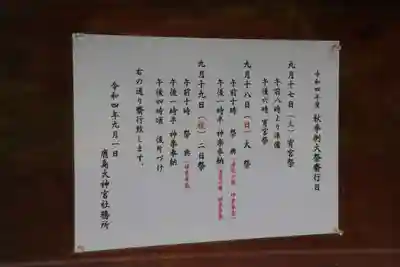 令和四年度 秋季例大祭斎行日
九月十七日（土）宵宮祭
午前八時より準備
午後六時 宵宮祭
九月十八日（日）大祭
午前十時 祭典
午後一時半 神楽奉納
九月十九日（祝）二日祭
午前十時 祭典
午後一時半 神楽奉納
午後四時頃 後片づけ
右の通り斎行致します。
令和四年九月一日
鹿島大神宮社務所